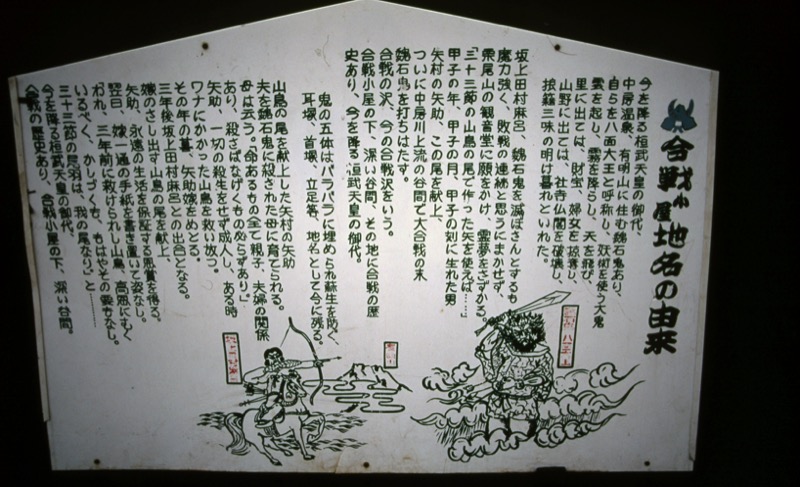 合戦小屋地名の由来
今を降る桓武天皇の御代、
中房温泉、有明山に住む魏石鬼あり、
自らを八面大王と呼称し、妖術を使う大鬼
雲を起し、霧を降らし、天を飛び
里に出ては、財宝、婦女を掠奪し、
山野に出ては、社寺仏閣を破壊し、
按簸三味の明け暮れといわれた。
坂上田村麻呂、魏石鬼を滅ぼさんとするも
魔力強く、敗戦の連続と思うにまかせず、
栗尾山の観音堂に願をかけ、霊夢をさずかる。
「三十三節の山鳥の尾で作った矢を使えば……」
甲子の年、甲子の月、甲子の刻に生れた男
矢村の矢助、この尾を献上、
ついに中房川上流の谷間で大合戦の末
魏石鬼を打ちはたす。
合戦の沢、今の合戦沢をいう。
合戦小屋の下、深い谷間、その地に合戦の歴
史あり、今を降る桓武天皇の御代。
鬼の五体はバラバラに埋められ蘇生を防ぐ、
耳塚、首塚、立足等、地名として今に残る。
山鳥の尾を献上した矢村の矢助
夫を魏石鬼に殺された母に育てられる。
母は云う。「命あるもの全て親子、夫婦の関係
あり、殺さばなげくものかならずあり。」
矢助、一切の殺生をせず成人し、ある時
ワナにかかった山鳥を救い放つ。
その年の暮、矢助嫁をめとる。
三年後坂上田村麻呂との出合となる。
嫁のさし出す山鳥の尾を献上、
矢助、永遠の生活を保証する恩賞を得る。
翌日、嫁一通の手紙を書き置いて姿なし。
「われ、三年前に救けられし山鳥、高恩にむく
いるべく、かしづくも、もはやその要もなし。
三十三節の尾羽は、我の尾なり」と……
今を降る桓武天皇の御代、
合戦の歴史あり、合戦小屋の下、深い谷間。